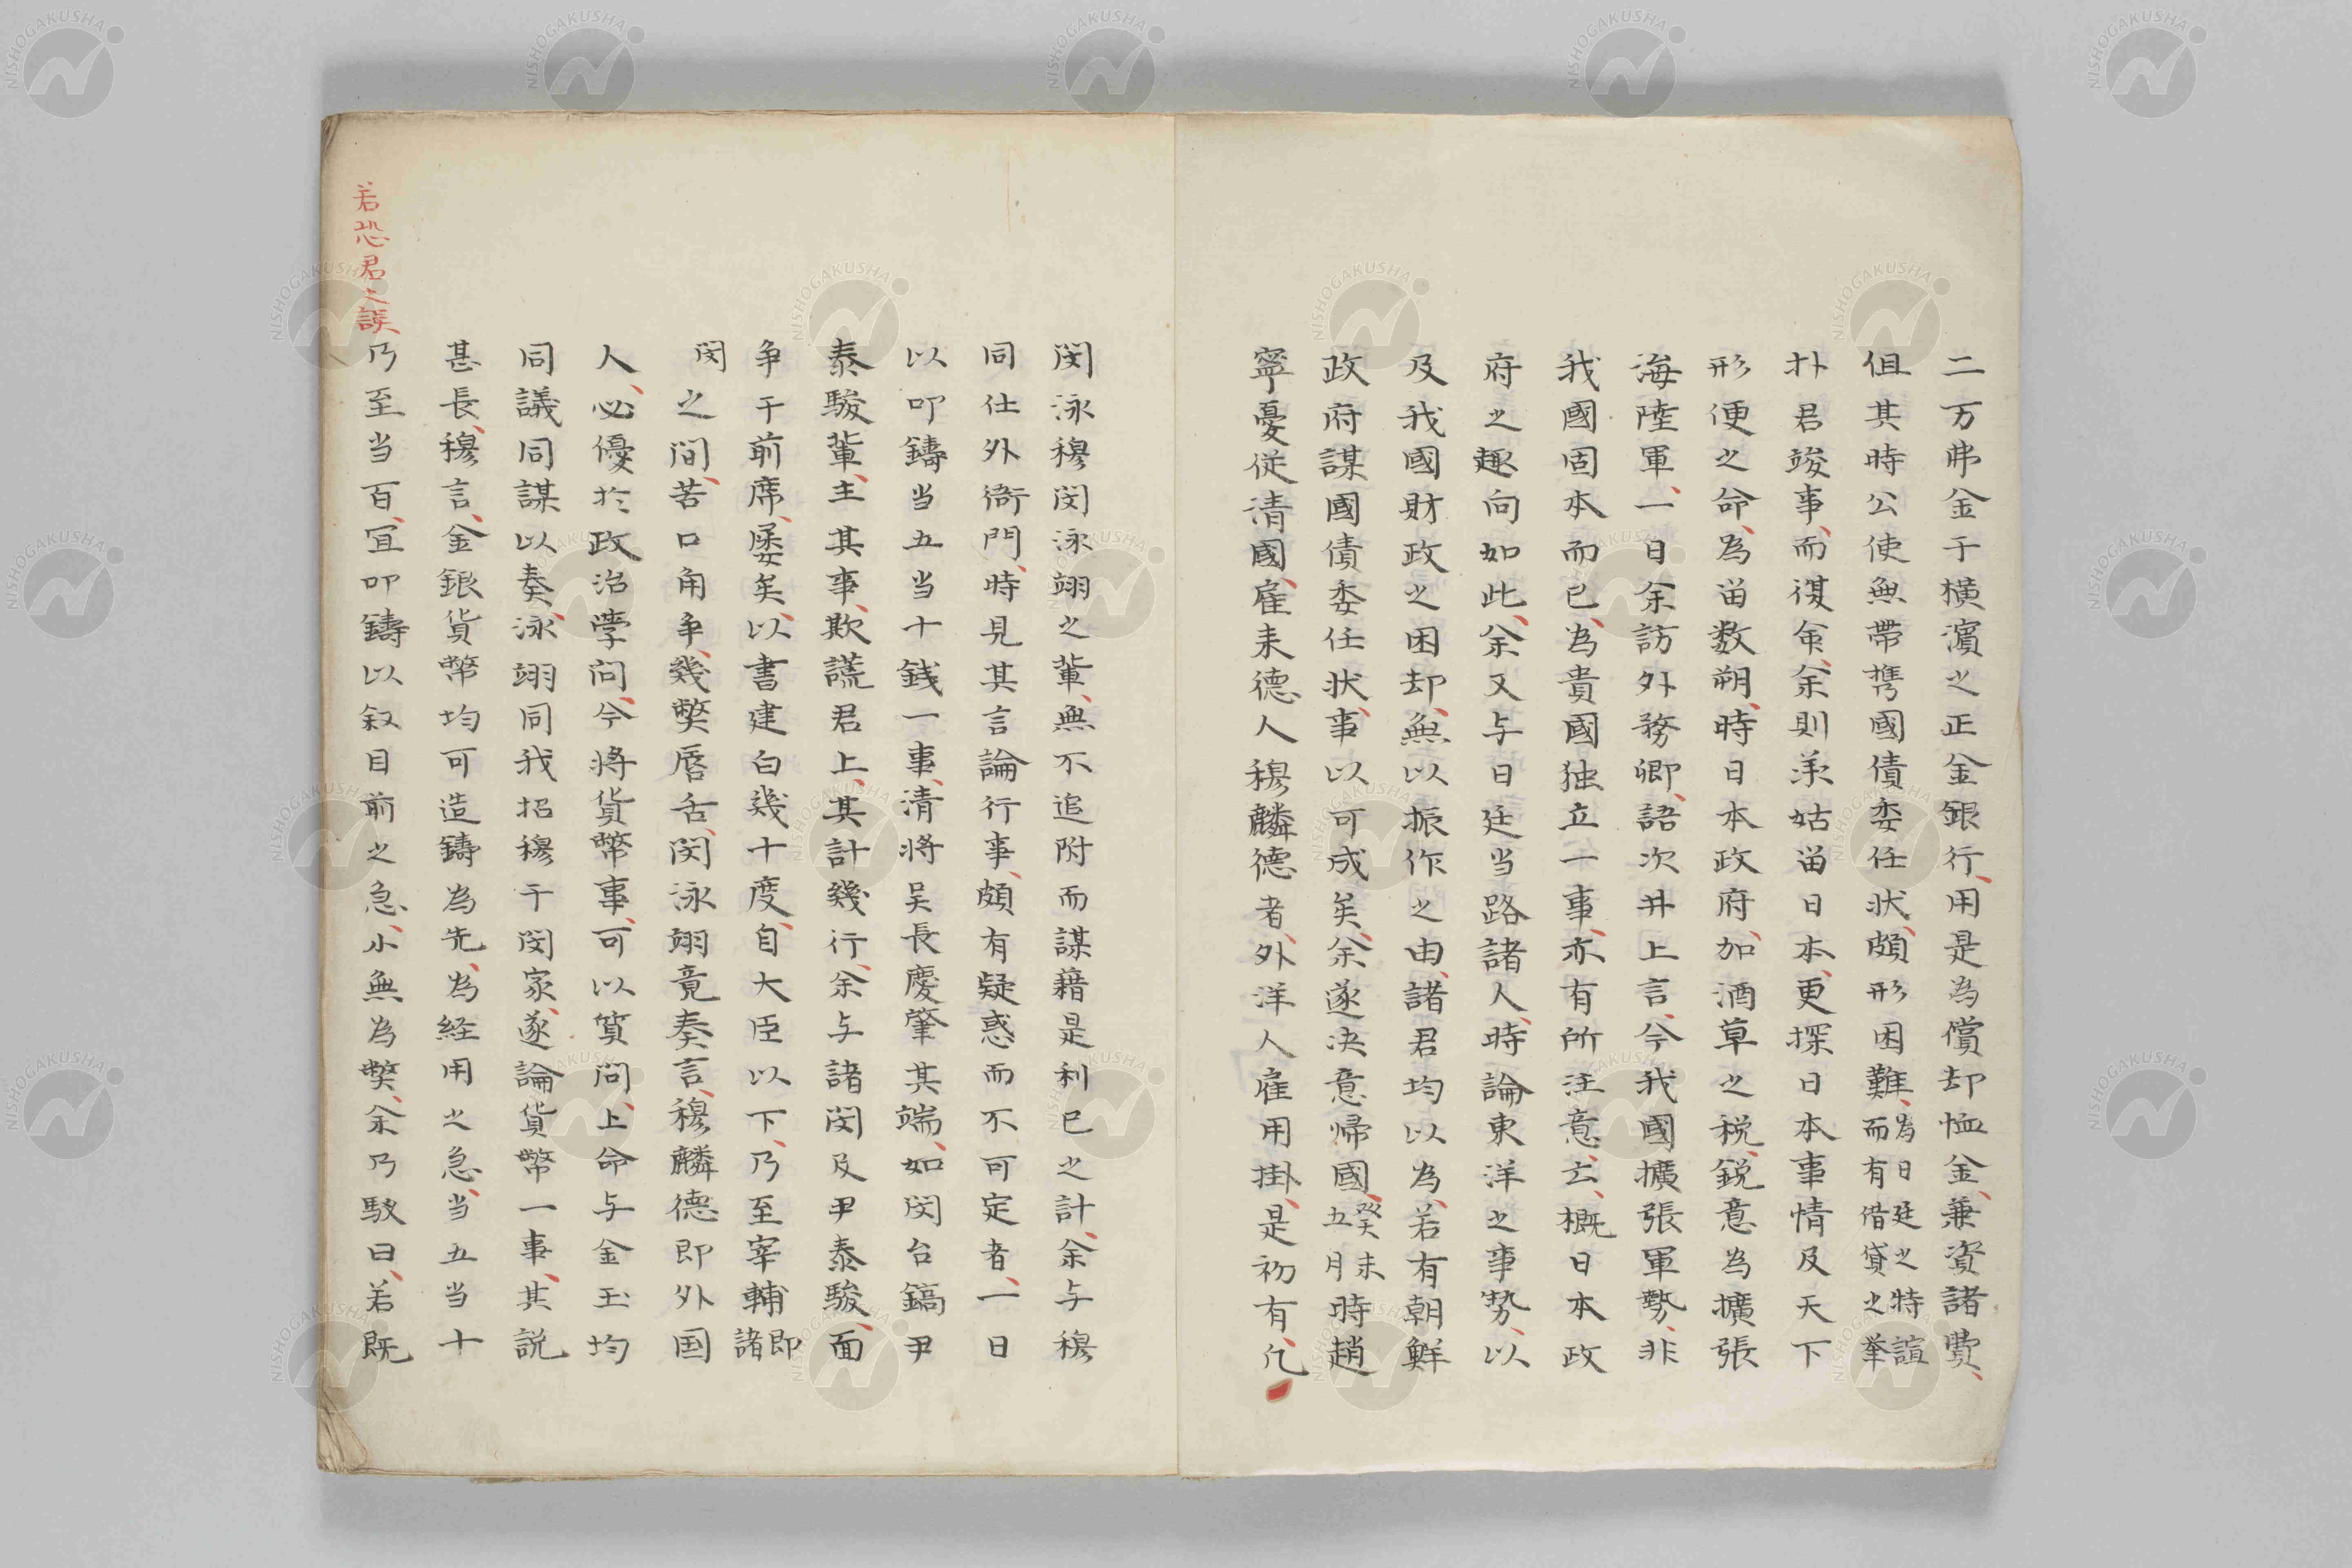 二万弗金于橫濵之正金銀行、用是為償却恤金、兼資諸費、
但其時公使無帶携國債委任状、頗形困難、為日廷之特誼而有借貸之挙
朴君竣事、而復命、余則承姑畄日本、更探日本事情及天下
形便之命、為畄数朔、時日本政府、加酒草之税、鋭意為擴張
海陸軍、一日余訪外務卿、語次井上言、今我國擴張軍勢、非
我國固本而已、為貴國独立一事、亦有所注意云、概日本政
府之趣向如此、余又与日廷当路諸人、時論東洋之事勢、以
及我國財政之困却、無以振作之由、諸君均以為、若有朝鮮
政府謀國債委任状、事以可成矣、余遂决意帰國、癸未五月時趙
寧憂従清國、雇来德人穆麟德者、外洋人雇用掛、是初有、凢
閔泳穆閔泳翊之輩、無不追附而謀藉是利已之計、余与穆
同仕外衙門、時見其言論行事、頗有疑惑而不可定者、一日
以叩鑄当五当十銭一事、清将呉長慶肇其端、如閔台鎬尹
泰駿輩、主其事、欺謊君上、其計幾行、余与諸閔及尹泰駿、面
争于前席、屡矣、以書建白幾十度、自大臣以下、乃至宰輔即諸
閔之间、苦口角争、幾獘唇舌、閔泳翊竟奏言、穆麟德即外国
人、必優於政治學问、今将貨幣事、可以質问、上命与金玉均
同議同謀以奏、泳翊同我招穆于閔家、遂論貨幣一事、其説
甚長、穆言、金銀貨幣均可造鑄為先、為経用之急、当五当十
乃至当百、冝叩鑄以叙目前之急、小無為獘、余乃駁曰、若既
若恐君之誤
NISHOGAKUSHA